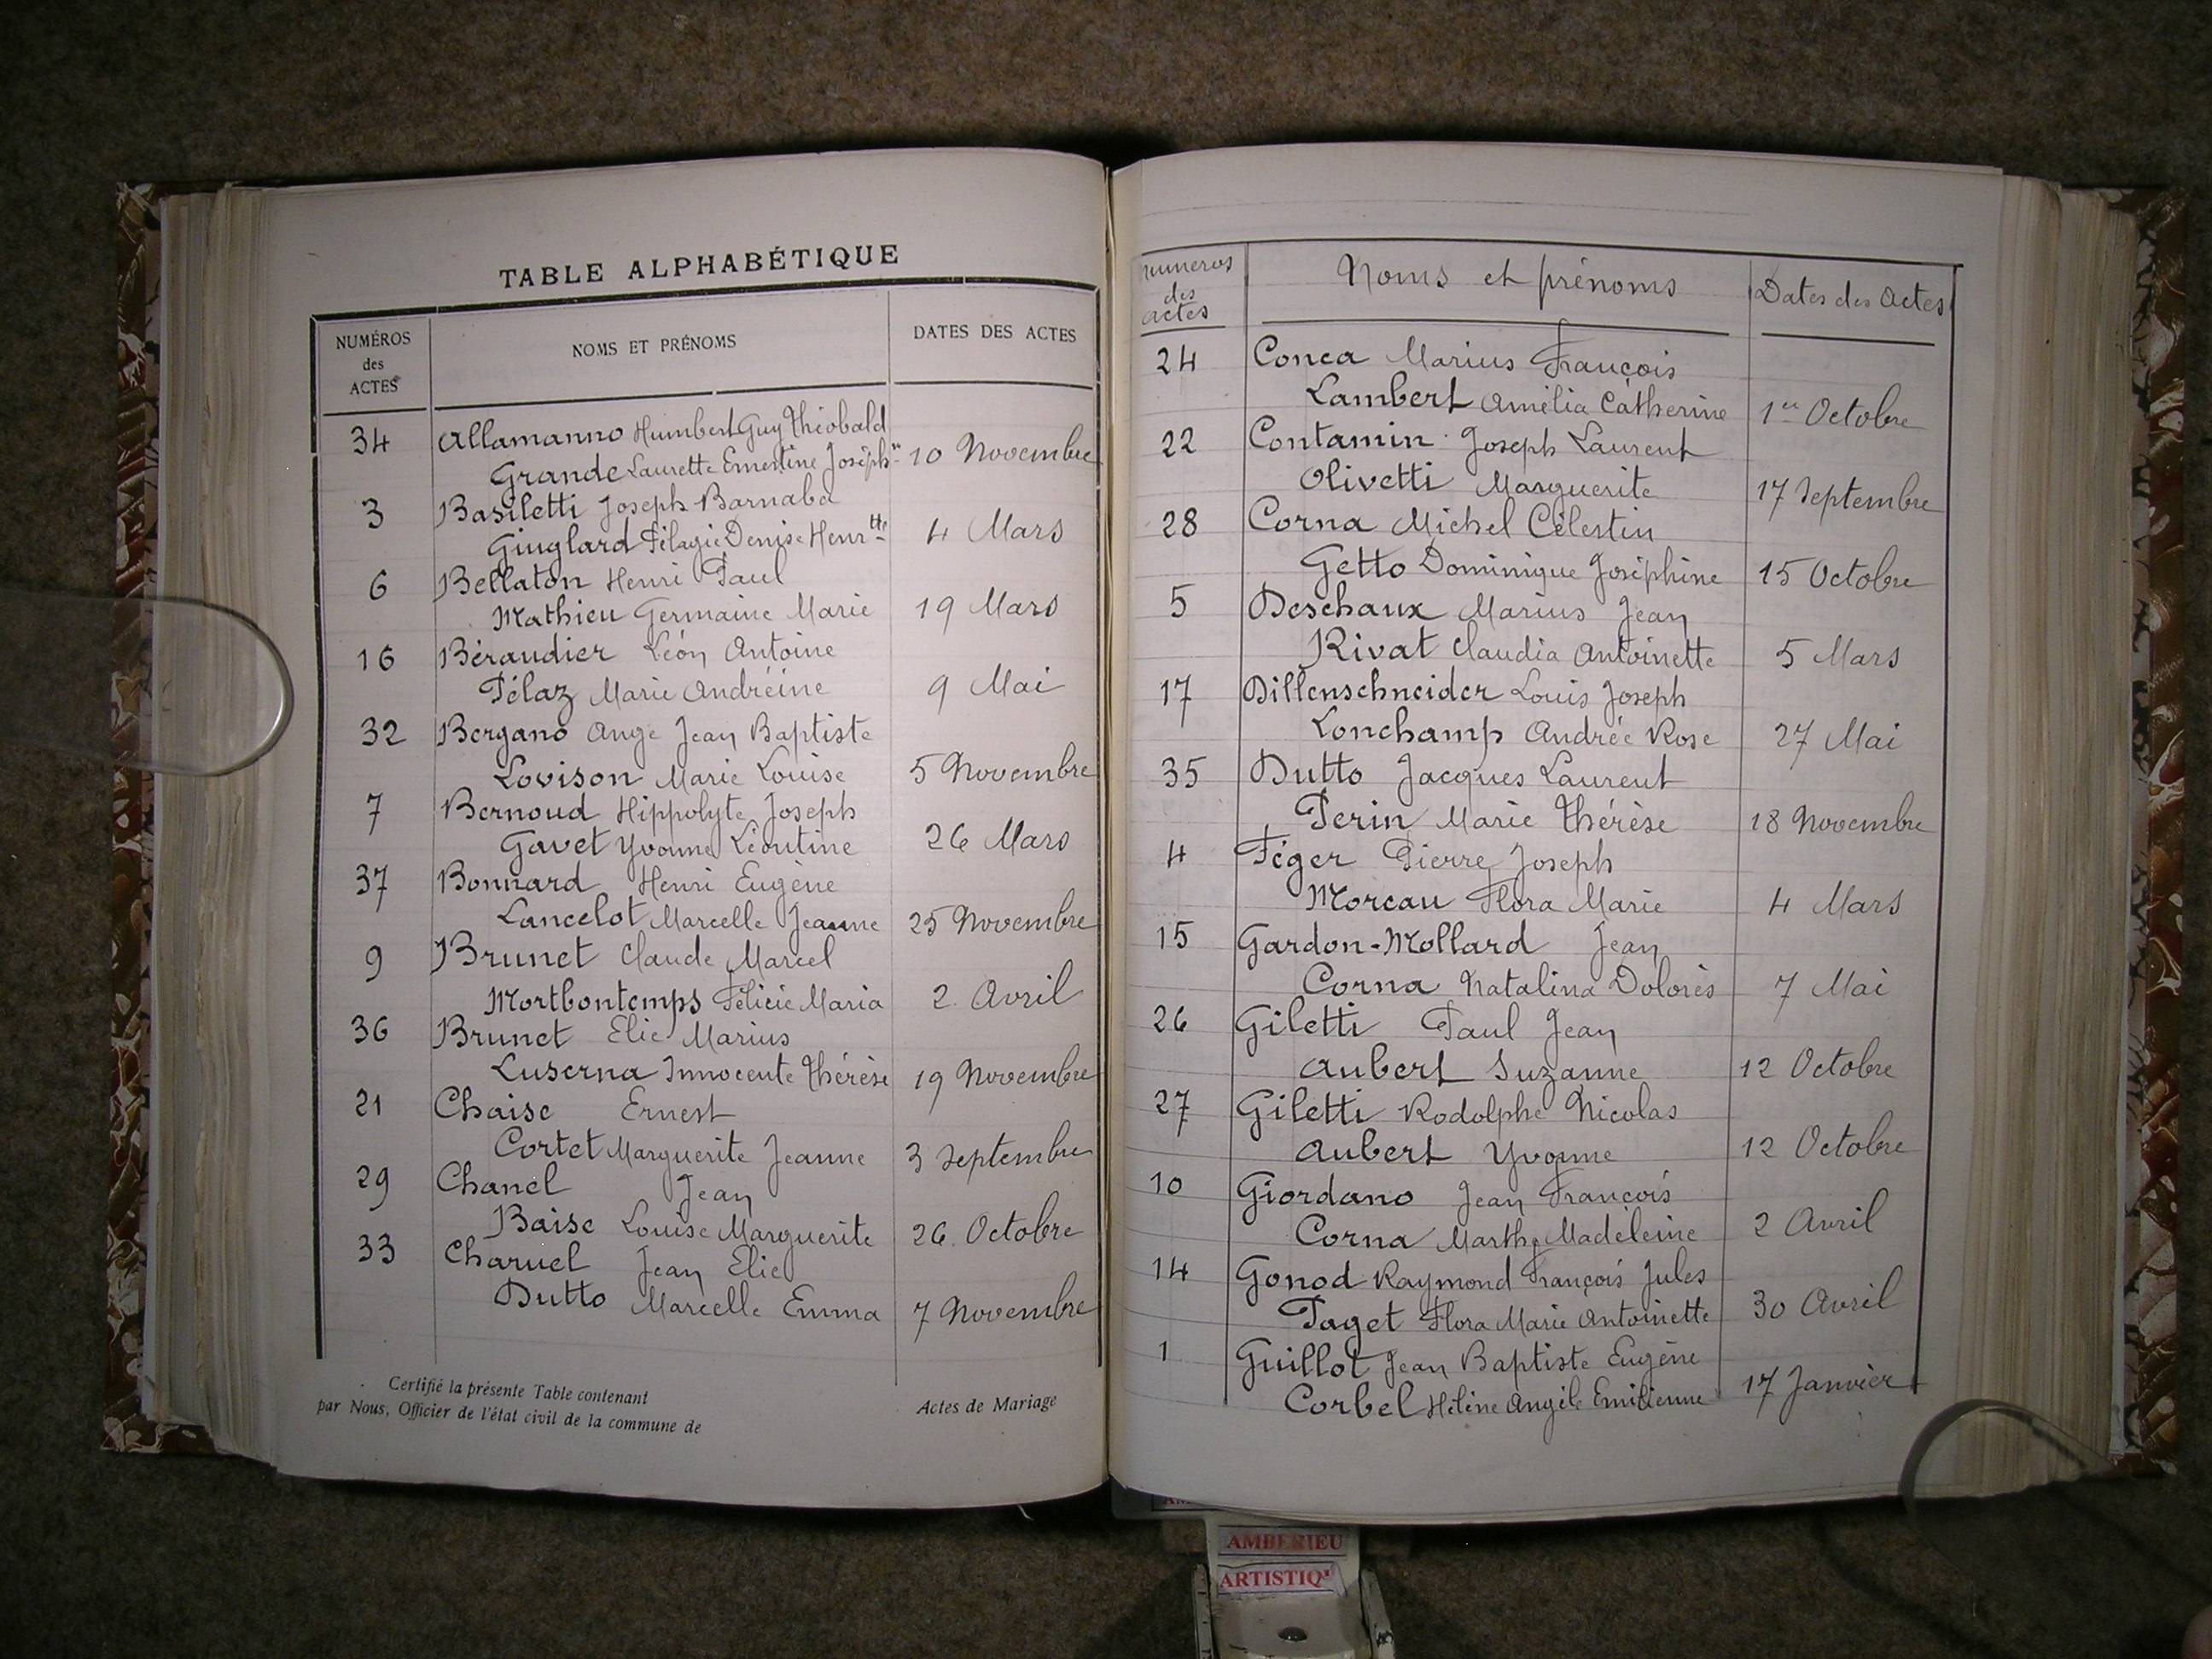 TABLE ALPHABÉTIQUE
NUMÉROS des ACTES NOMS ET PRÉNOMS DATES DES ACTES
34 Allamanno Humbert Guy Théobald
Grande Laurette Ernestine Joséph^ne 10 Novembre
3 Basiletti Joseph Barnabé
Giuglard Pélagie Denise Henr^tte 4 Mars
6 Bellaton Henri Paul
Mathieu Germaine Marie 19 Mars
16 Béraudier Léon Antoine
Pélaz Marie Andréine 9 Mai
32 Bergano Ange Jean Baptiste
Lovison Marie Louise 5 Novembre
7 Bernoud Hippolyte Joseph
Gavet Yvonne Léontine 26 Mars
37 Bonnard Henri Eugène
Lancelot Marcelle Jeanne 25 Novembre
9 Brunet Claude Marcel
Mortbontemps Félicie Maria 2 Avril
36 Brunet Elie Marius
Luserna Innocente Thérèse 19 Novembre
21 Chaise Ernest
Cortet Marguerite Jeanne 3 Septembre
29 Chanel Jean
Baise Louise Marguerite 26 Octobre
33 Charuel Jean Elie
Dutto Marcelle Emma 7 Novembre
Certifié la présente Table contenant Actes de Mariage
par Nous, Officier de l'état civil de la commune de
numéros des actes Noms et prénoms Dates des Actes
24 Conca Marius François
Lambert Amélia Catherine 1er Octobre
22 Contamin Joseph Laurent
Olivetti Marguerite 17 Septembre
28 Corna Michel Célestin
Getto Dominique Joséphine 15 Octobre
5 Deschaux Marius Jean
Rivat Claudia Antoinette 5 Mars
17 Dillenschneider Louis Joseph
Lonchamp Andrée Rose 27 Mai
35 Dutto Jacques Laurent
Perin Marie Thérèse 18 Novembre
4 Féger Pierre Joseph
Moreau Flora Marie 4 Mars
15 Gardon-Mollard Jean
Corna Natalina Dolorès 7 Mai
26 Giletti Paul Jean
Aubert Suzanne 12 Octobre
27 Giletti Rodolphe Nicolas
Aubert Yvonne 12 Octobre
10 Giordano Jean François
Corna Marthe Madeleine 2 Avril
14 Gonod Raymond François Jules
Paget Flora Marie Antoinette 30 Avril
1 Guillot Jean Baptiste Eugène
Corbel Hélène Angèle Emilienne 17 Janvier
AMBERIEU
ARTISTIQ